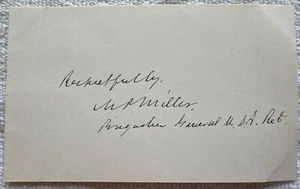 Respectfully,
M P Miller,
Brigadier General U.S.A. Ret.